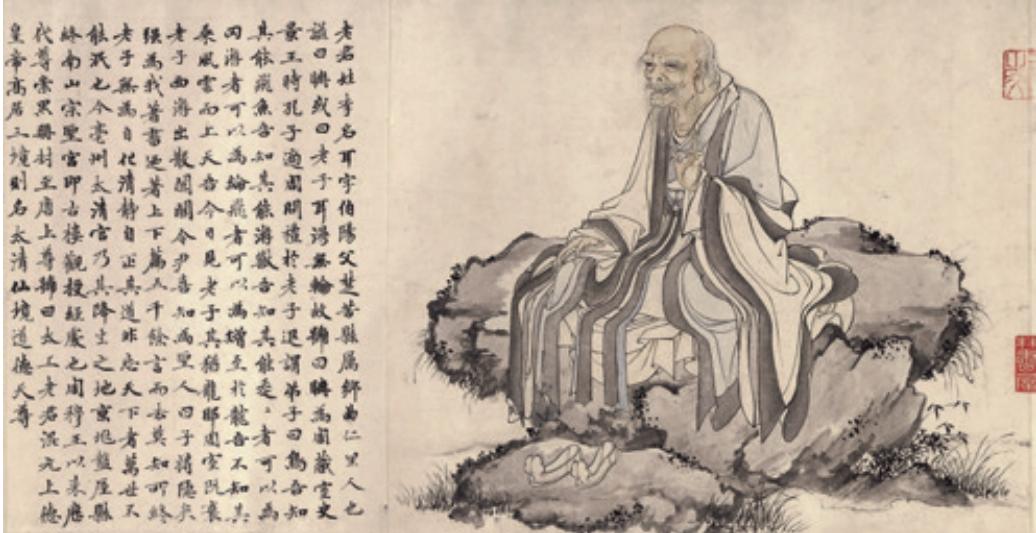 老君姓李名耳字伯陽父楚苦縣厲鄉曲仁里人也
諡曰聃或曰老子耳漫無輪故號曰聃為周藏室史
景王時孔子適周問禮於老子退謂弟子曰鳥吾知
其能飛魚吾知其能游獸吾知其能走〻者可以為
罔游者可以為綸飛者可以為矰至於龍吾不知其
乘風雲而上天吾今日見老子其猶龍耶周室既衰
老子西游出散關關令尹喜知為聖人曰子將隱矣
強為我著書迺著上下篇五千餘言而去莫知所終
老子無為自化清靜自正其道非忘天下者萬世不
能泯也今亳州太清宮乃其降生之地盩厔縣
終南山宗聖宮即古樓觀授經處也周穆王以來歷
代尊崇累號封至唐上尊號曰太上老君混元上德
皇帝高居三境則名太清仙境道德天尊